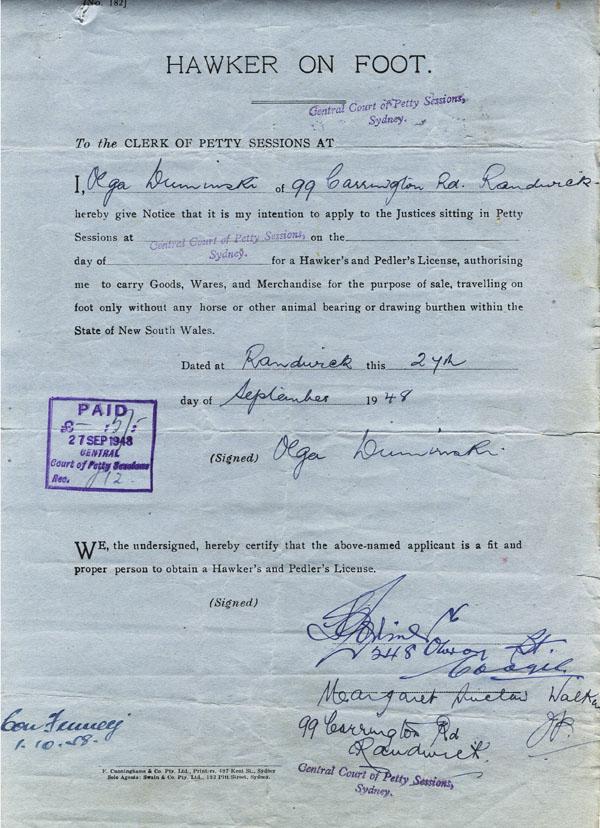 [No. 182]
HAWKER ON FOOT.
Central Court of Petty Sessions,
Sydney.
To the CLERK OF PETTY SESSIONS AT
I, Olga Duminski of 99 Carrington Rd. Randwick
hereby give Notice that it is my intention to apply to the Justices sitting in Petty
Sessions at Central Court of Petty Sessions, on the
Sydney.
day of for a Hawker's and Pedler's License, authorising
me to carry Goods, Wares, and Merchandise for the purpose of sale, travelling on
foot only without any horse or other animal bearing or drawing burthen within the
State of New South Wales.
Dated at Randwick this 27th
day of September 1948
PAID
£- : 5/- :
27 SEP 1948
CENTRAL
Court of Petty Sessions
Rec. 
(Signed) Olga Duminski
WE, the undersigned, hereby certify that the above-named applicant is a fit and
proper person to obtain a Hawker's and Pedler's License.
(Signed)
248 St.
Coogee
Margaret Walker
J.P.
99 Carrington Rd
Randwick.
Con
1.10.
F. Cunninghame & Co. Pty. Ltd., Printers, 497 Kent St., Sydney
Sole Agents: Swain & Co. Pty. Ltd., 123 Pitt Street, Sydney.
Central Court of Petty Sessions,
Sydney.